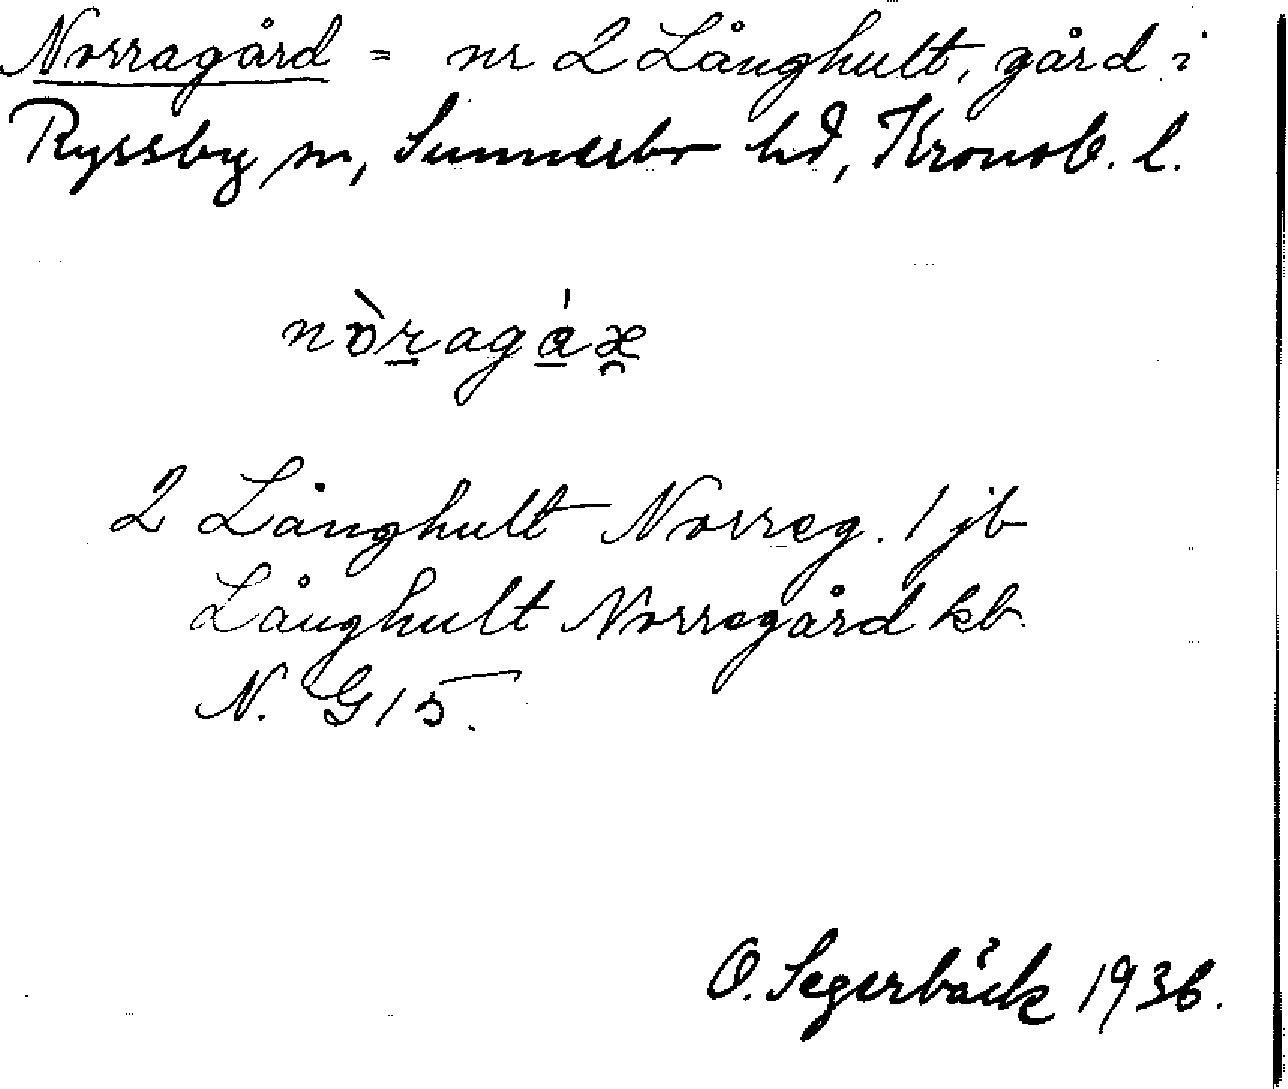 Norragård = nr 2 Långhult, gård i
Ryssby sn, Sunnerbo hd, Kronob. l.
2 Långhult Norreg. 1 jb
Långhult Norregård kb
N. G 15.
O. Segerbäck 1936.